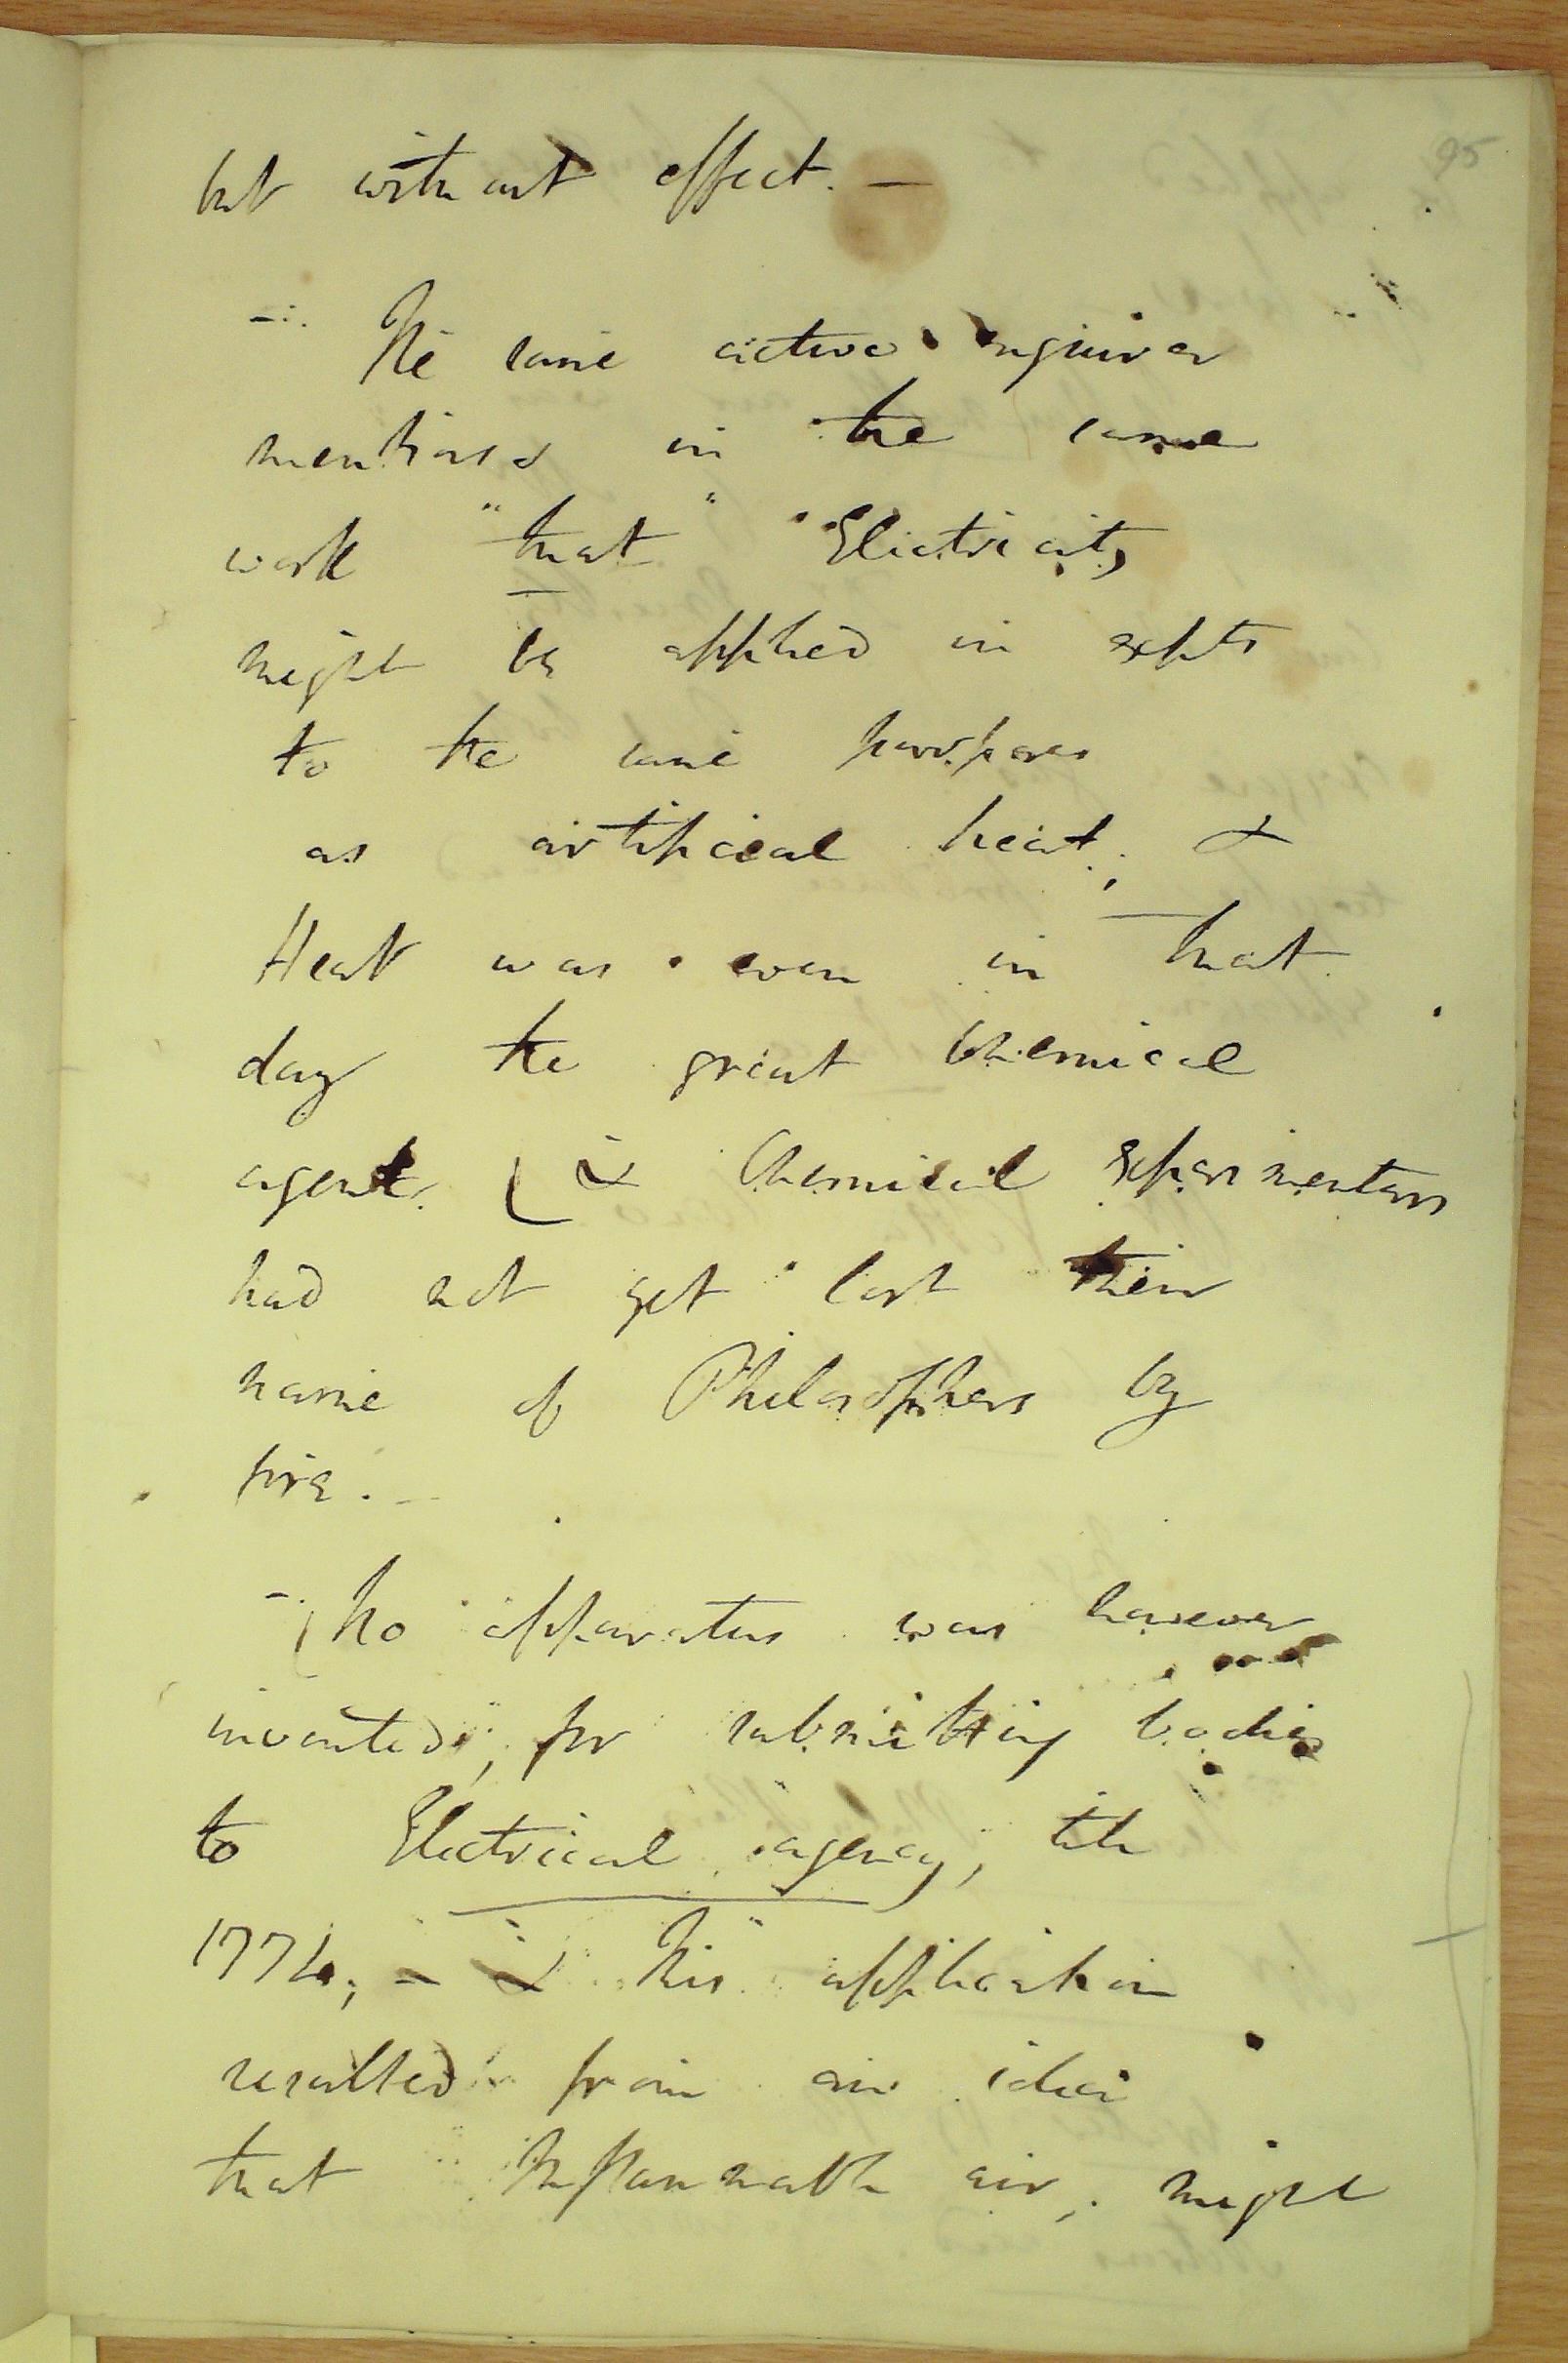 95
but without effect. —
-:. The same active enquirer
mentions in the same
work "that" Electricity
might be applied in expts
to the same purposes
as artificial heat; &
Heat was even in that
day the great Chemical
agent. ( & Chemical Experimenters
had not yet lost their
name of Philosophers by
fire. —
-. ( No apparatus was however
invented, for submitting bodies
to Electrical agency, till
1774; - & this application
resulted from an idea
that Inflammable air, might